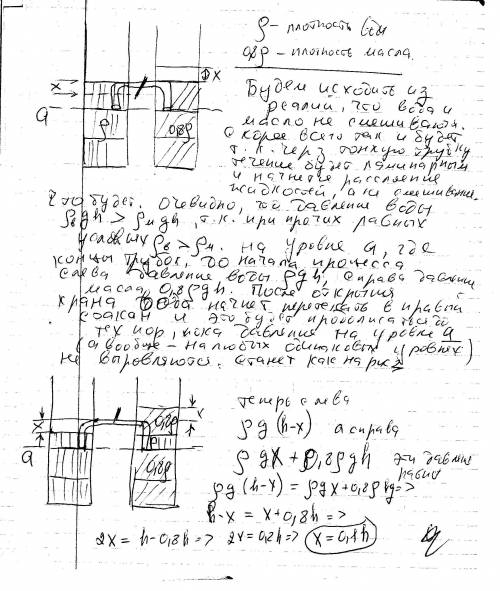 ρ - плотность воды
0,8ρ - плотность масла.
x
x
a
ρ
0,8ρ
Будем исходить из
реалии, что вода и
масло не смешиваются.
Скорее всего так и будет
т.к. через тонкую трубку
течение будет ламинарным
и начнется расслоение
жидкостей, а не смешивание.
Что будет. Очевидно, что давление воды
ρвgh > ρмgh, т.к. при прочих равных
условиях ρв > ρм. На уровне a, где
концы трубок, до начала процесса
слева давление воды ρgh, справа давление
масла 0,8ρgh. После открытия
крана вода начнет перетекать в правый
стакан и это будет продолжаться до
тех пор, пока давления на уровне a
(а вообще - на любых одинаковых уровнях)
не выровняются. Станет как на рис 2
x
a
0,8ρ
ρ
0,8ρ
x
теперь слева
ρg(h-x) а справа
ρgx + 0,8ρgh эти давления
равны
ρg(h-x) = ρgx+0,8ρgh =>
h-x = x+0,8h =>
2x = h-0,8h => 2x=0,2h => x=0,1h